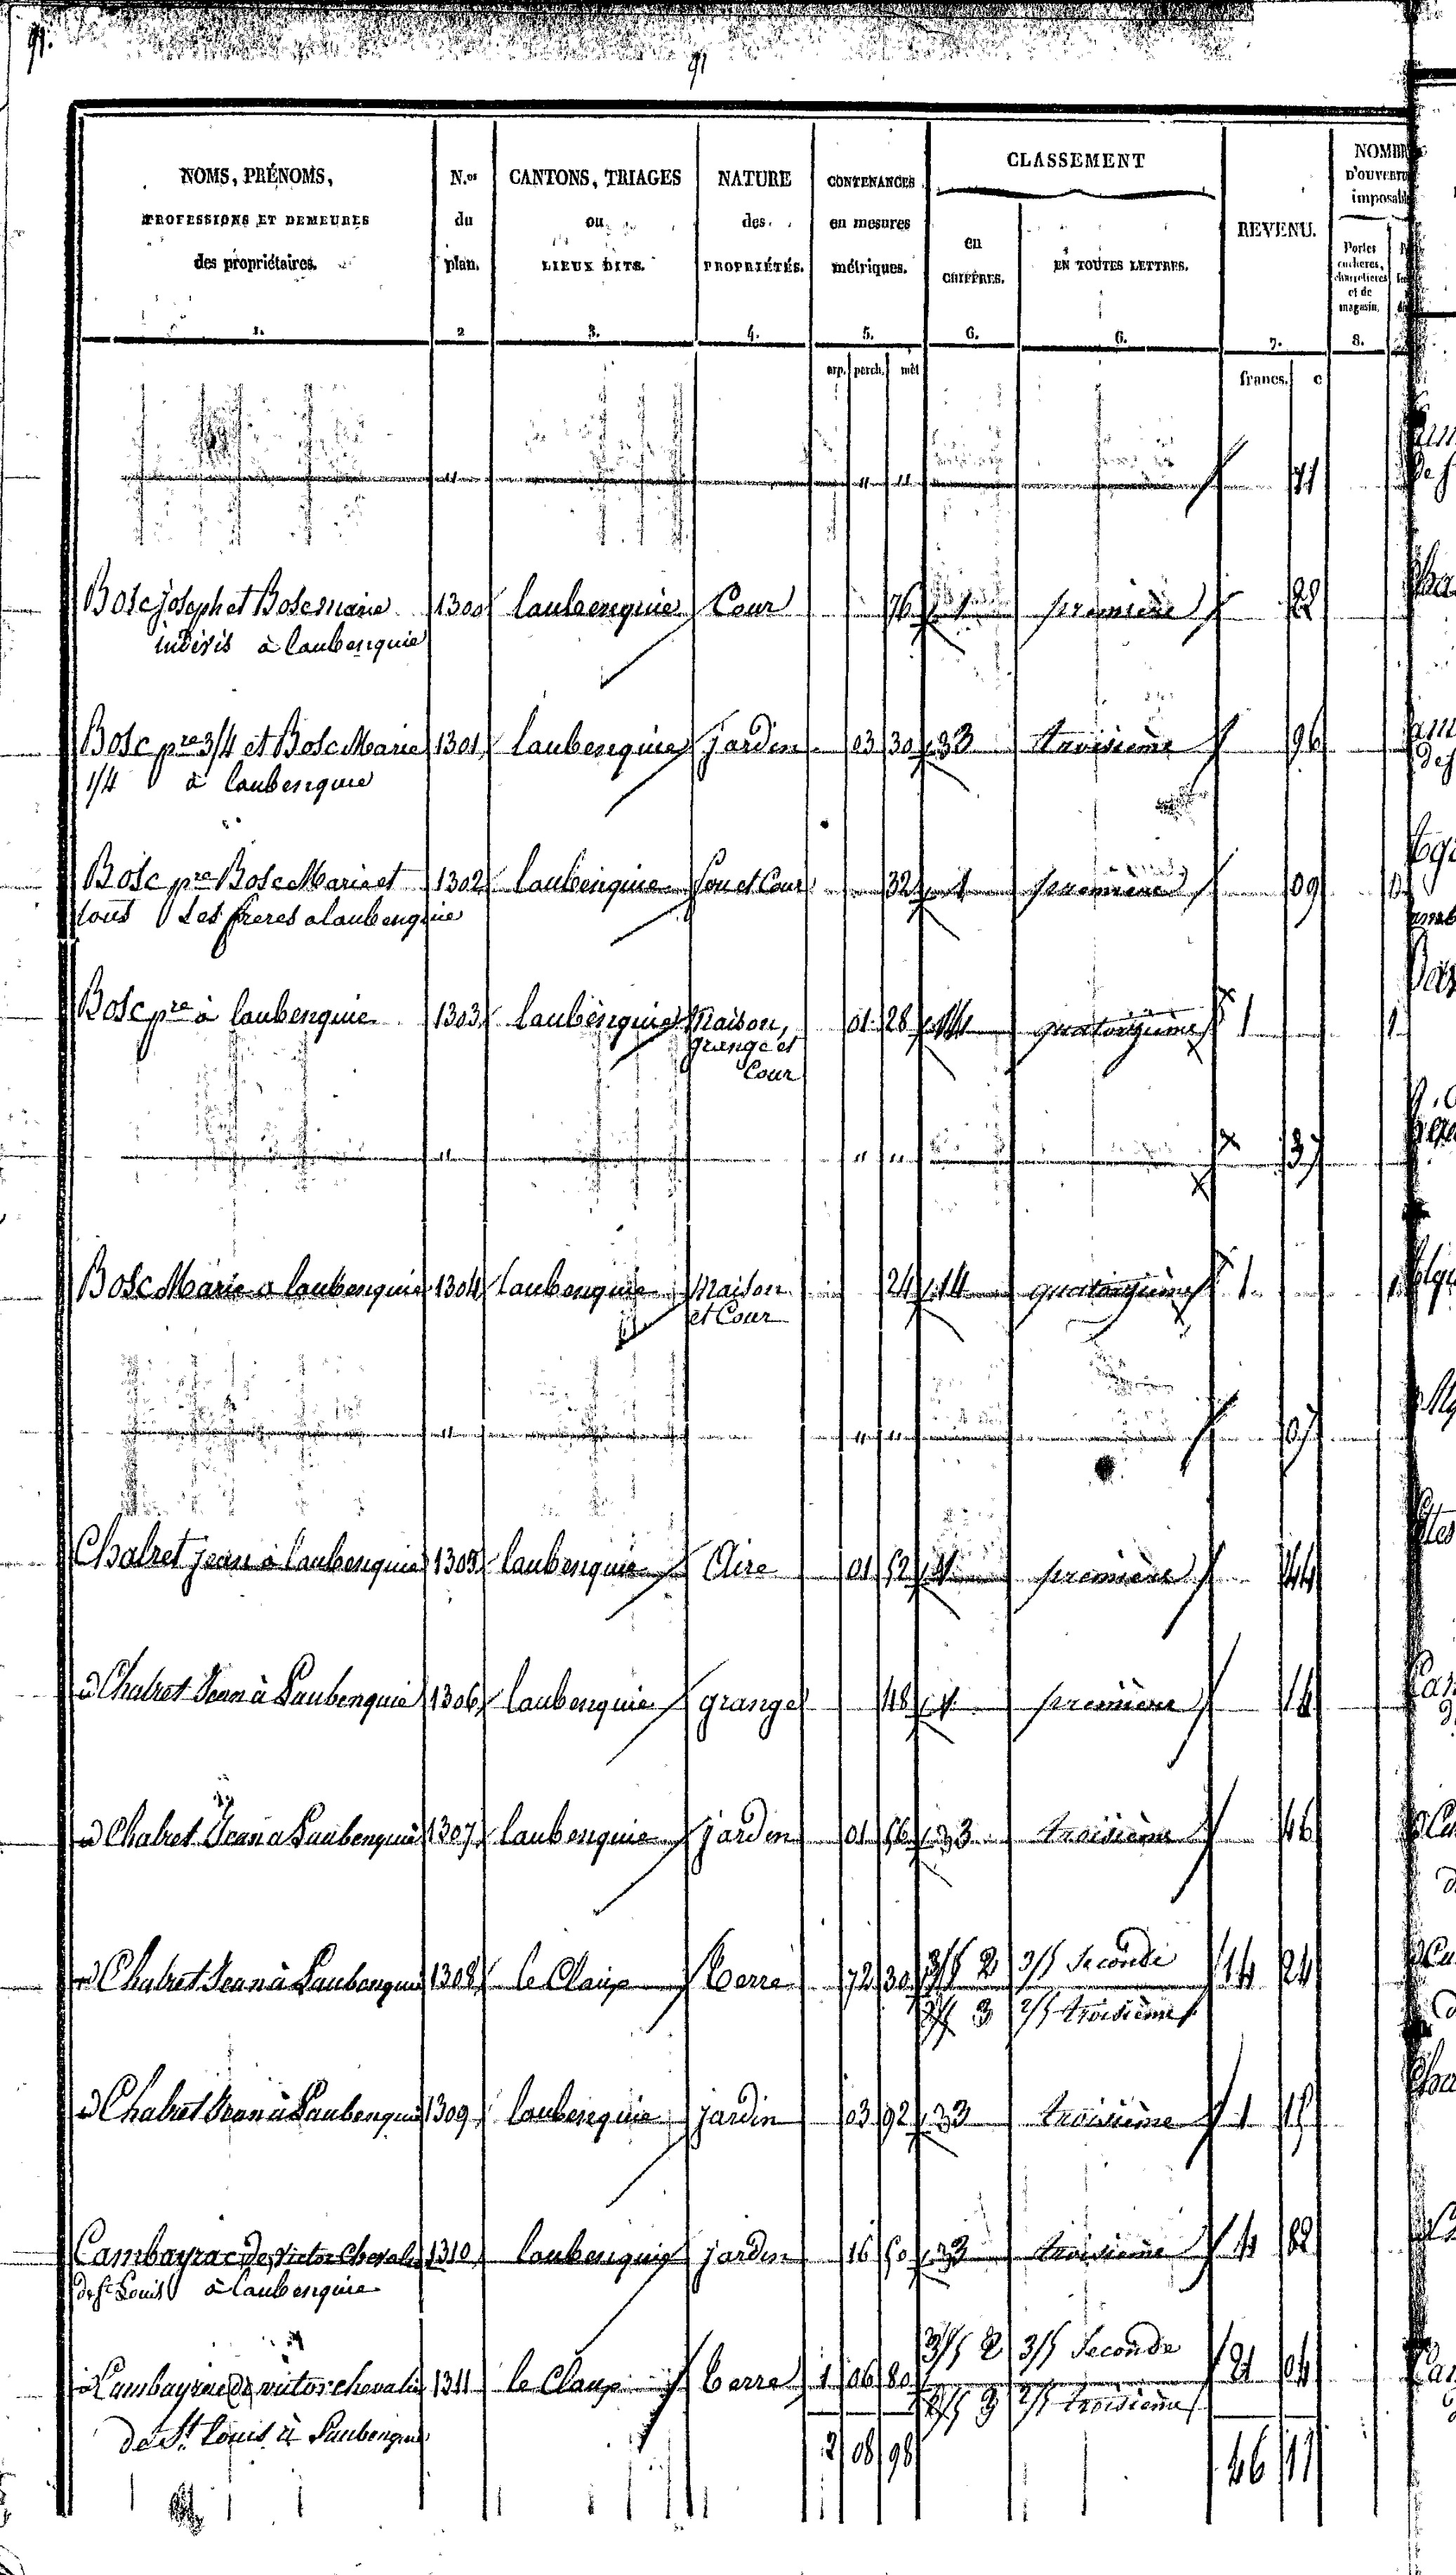 91.
91
NOMS, PRÉNOMS, PROFESSIONS ET DEMEURES des propriétaires.
N.os du plan.
CANTONS, TRIAGES ou LIEUX DITS.
NATURE des PROPRIÉTÉS.
CONTENANCES en mesures métriques.
CLASSEMENT
en CHIFFRES.
EN TOUTES LETTRES.
REVENU.
NOMBRE D'OUVERTU imposabl
Portes cocheres, charretieres et de magasin.
1. 2 3. 4. 5. 6. 6. 7. 8.
arp. perch. mèt francs. c
" " " 71
Bosc joseph et Bosc marie 1300 laubenquie Cour 76 1 première 22
indivis à laubenquie
Bosc pre 3/4 et Bosc Marie 1301 laubenquie jardin 03 30 3 troisième 96
1/4 à laubenquie
Bosc pre Bosc Marie et 1302 laubenquie fou et Cour 32 1 première 09
tous Les freres a laubenquie
Bosc pre à laubenquie 1303 laubenquie Maison, 01 28 14 quatorzieme 1
grange et
Cour
" " " 37
Bosc Marie a laubenquie 1304 laubenquie Maison 24 14 quatorzième 1
et Cour
" " " 07
Chalret jean à laubenquie 1305 laubenquie Aire 01 52 1 première 44
d Chalret Jean à Laubenquie 1306 laubenquie grange 48 1 première 14
d Chalret Jean a Laubenquie 1307 laubenquie jardin 01 56 3 troisième 46
d Chalret Jean à Laubenquie 1308 le Claup Terre 72 30 3/5 2 3/5 Seconde 14 24
2/5 3 2/5 troisième
d Chalret Jean à Laubenquie 1309 laubenquie jardin 03 92 3 troisième 1 15
Cambayrac De Victor Chevalier 1310 laubenquie jardin 16 50 3 troisième 4 82
de St Louis à laubenquie
d Cambayrac De victor chevalier 1311 le Claup Terre 1 06 80 3/5 2 3/5 Seconde 21 04
2/5 3 2/5 troisième
de St. Louis à Laubenquie
2 08 98 46 71